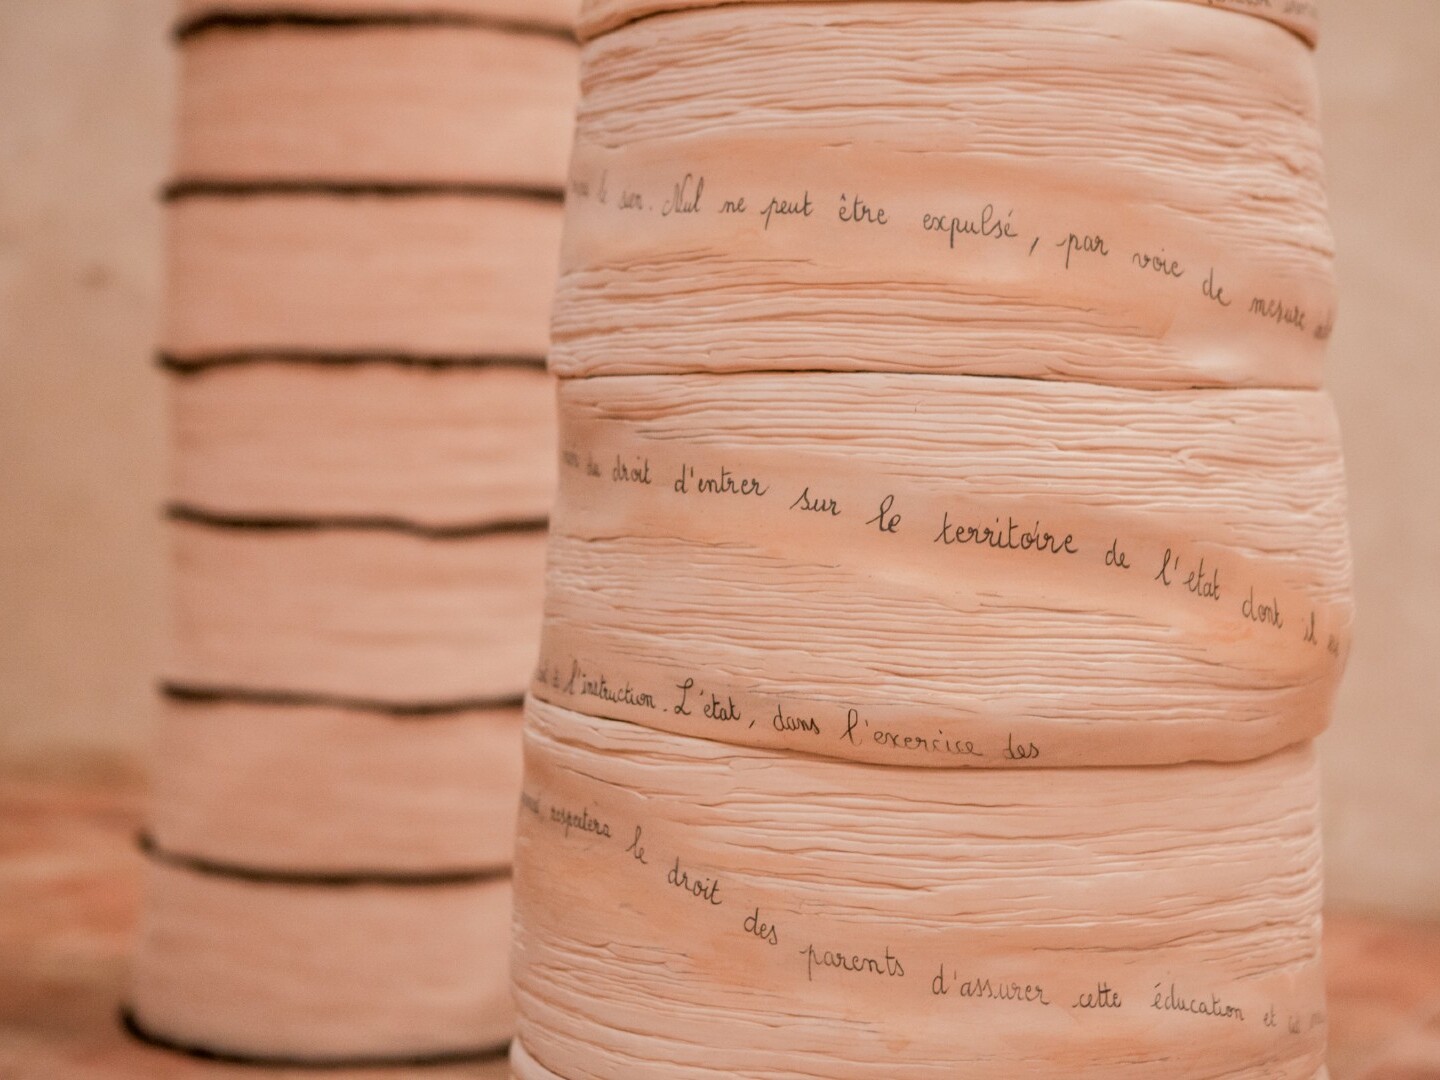 le sien. Nul ne peut être expulsé, par voie de mesure
du droit d'entrer sur le territoire de l'état dont il
à l'instruction. L'état, dans l'exercice des
respectera le droit des parents d'assurer cette éducation et